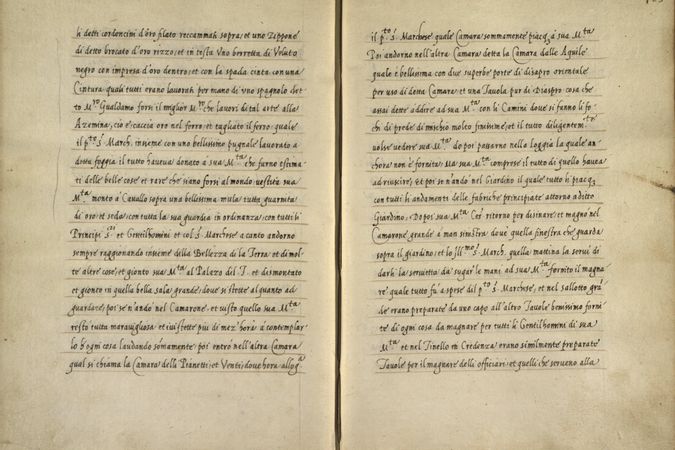 li detti cordoncini d'oro filato reccammati sopra, et uno Zippone
di detto brocato d'oro rizzo, et in testa una berretta di Veluto
negro con impresa d'oro dentro, et con la spada cinta con una
Cintura, quali tutti erano lavorati per mano di uno spagnolo det
to M.ro Gualdamo forsi il miglior M.ro che lavori di tal arte alla
Azemina, cio è, caccia oro nel ferro, et tagliato il ferro, quale
il p.to S. March. insieme con uno bellissimo pugnale lavorato a
detta foggia il tutto haveva donato à sua M.ta che furno estima
ti delle belle cose, et rare che siano forsi al mondo, vestita sua
M.ta montò à Cavallo sopra una bellissima mula tutta guarnita
di oro, et seda, con tutta la sua guardia in ordinanza, con tutti li
Principi S.ri et Gentilhomini et col S. Marchese a canto andorno
sempre raggionando insieme della Bellezza di la Terra, et di mol
te altre cose, et gionto sua M.ta al Palazo del .T. et dismontato
et gionto in quella bella sala grande, dove si stette alquanto ad
guardare, poi se n'andò nel Camarone, et visto quello sua M.ta
restò tutta maravigliosa, et ivi stette più di mez'hora à contemplar
lo, b ogni cosa laudando sommamente, poi entrò nell'altra Camara
qual si chiama la Camara delli Pianetti, et Venti, dove hora allogg.a
il p.to S. Marchese quale Camara sommamente piacq, à sua M.ta
Poi andorno nell'altra Camara detta la Camara dalle Aquile
quale è bellissima con due superbe porte di diaspro orientale
per uso di detta Camara, et una Tavola pur di Diaspro, cosa che
assai dette addire ad sua M.ta con li Camini dove si fanno li fo
chi di prede di mischio molto finissime, et il tutto diligentem.te
volse vedere sua M.ta do poi passarno nella loggia la quale an
chora non è fornita, Ma sua M.ta comprese il tutto di quello haveva
ad riuscire, Et poi se n'andò nel Giardino il quale tutto li piacq,
con tutti li andamenti delle fabriche principiate attorno a ditto
Giardino: Do poi sua M.ta Ces. ritornò per disinare, et magnò nel
Camarone grande à man sinistra, dove quella finestra che guarda
sopra il giardino, et lo Ill.mo S. March. quella mattina la servì di
darli la servietta da sugar le mani, ad sua M.ta fornito il magna
re, quale tutto fu à spese dil p.to S. Marchese, et nel sallotto grā
de erano preparate da uno capo all'altro Tavole benissimo forni
te di ogni cosa da magnare per tutti li Gentilhomini di sua
M.ta et nel Tinello in Credenza erano similmente preparate
Tavole per il magnare delli officiari, et quelli che serveno alla